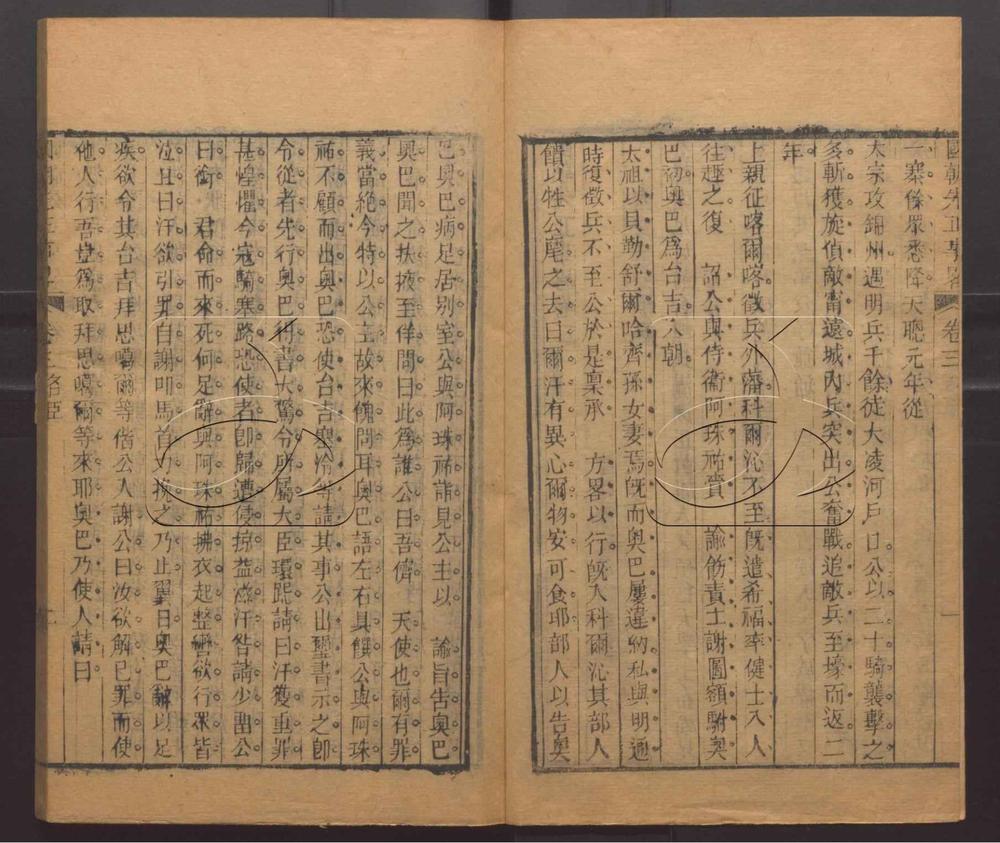 國朝先正事略 卷三
一寨餘眾悉降天聰元年從
太宗攻錦州遇明兵千餘徒大凌河戶口公以二十騎襲擊之
多斬獲旋偵敵甯遠城內兵突出公奮戰追敵兵至壕而返二
年
上親征喀爾喀徵兵外藩科爾沁不至旣遣希福率健士八人
往趣之復 詔公與侍衛阿珠祐賫 諭飭責土謝圖額駙奧
巴初奧巴爲台吉入朝
太祖以貝勒舒爾哈齊孫女妻焉旣而奧巴屢違約私與明通
時復徵兵不至公於是稟承 方畧以行旣入科爾沁其部人
饋以牲公麾之去曰爾汗有異心爾物安可食耶部人以告奧
巴奧巴病足居別室公與阿珠祐謁見公主以 諭旨告奧巴
奧巴聞之扶掖至佯問曰此爲誰公曰吾儕 天使也爾有罪
義當絕今特以公主故來餽問耳奧巴語左右具饌公與阿珠
祐不顧而出奧巴恐使台吉塞冷等請其事公出璽書示之卽
令從者先行奧巴得書大驚令所屬大臣環跽請曰汗獲重罪
甚惶懼今寇騎塞路恐使者卽歸遭侵掠益滋汗咎請少留公
曰銜 君命而來死何足辭與阿珠祐拂衣起整轡欲行眾皆
泣且曰汗欲引罪自謝叩馬首力挽之乃止翼日奧巴辭以足
疾欲令其台吉拜思噶爾等偕公入謝公曰汝欲解己罪而使
他人行吾豈爲取拜思噶爾等來耶奧巴乃使人請曰
卷三